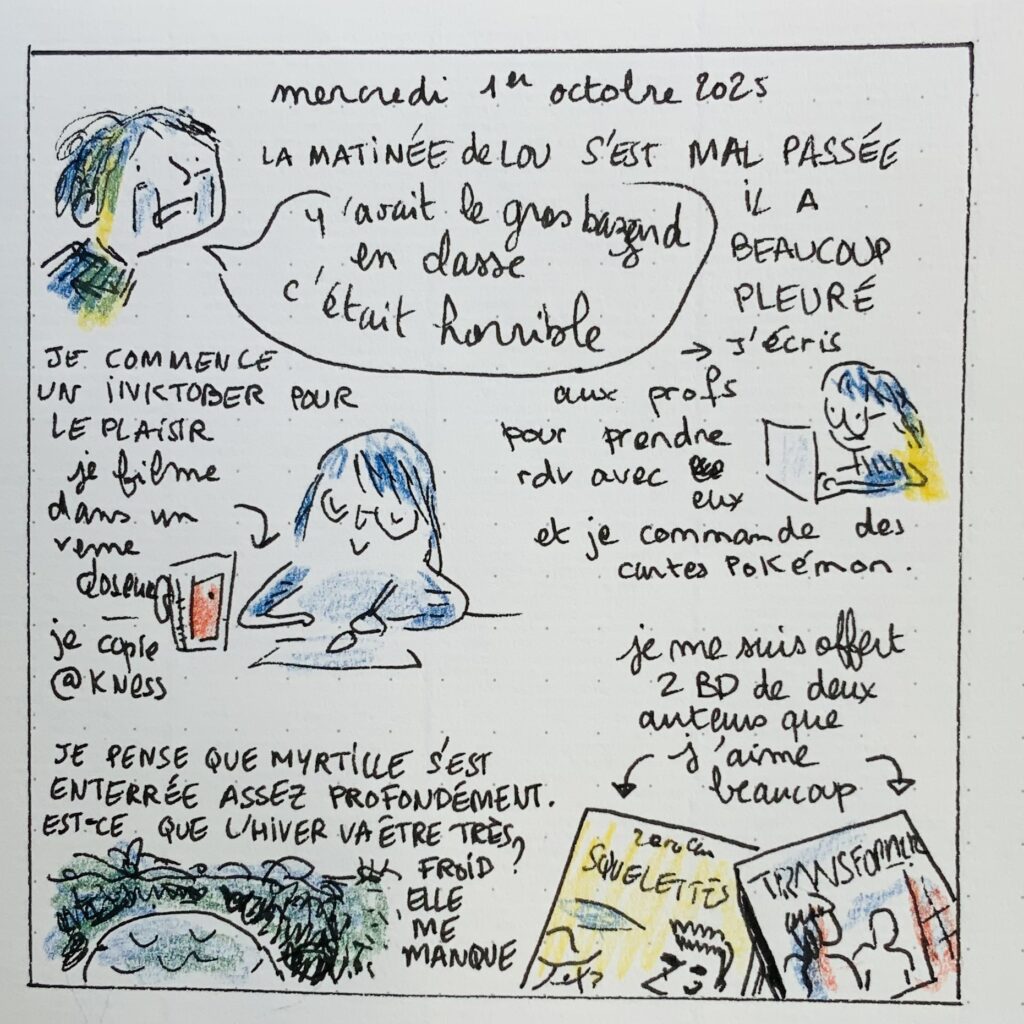 mercredi 1er octobre 2025
LA MATINÉE de LOU S'EST MAL PASSÉE
IL A
BEAUCOUP
PLEURÉ
y'avait le gros bazard
en classe
c'était horrible
→ J'écris
aux profs
pour prendre
rdv avec
eux
et je commande des
cartes POKémon.
JE COMMENCE
UN INKTOBER POUR
LE PLAISIR
je filme
dans un
verre
doseur
je copie
@KNess
je me suis offert
2 BD de deux
auteurs que
j'aime
beaucoup
JE PENSE QUE MYRTILLE S'EST
ENTERRÉE ASSEZ PROFONDÉMENT.
EST-CE QUE L'HIVER VA ÊTRE TRÈS
FROID ?
ELLE
ME
MANQUE
SQUELETTES